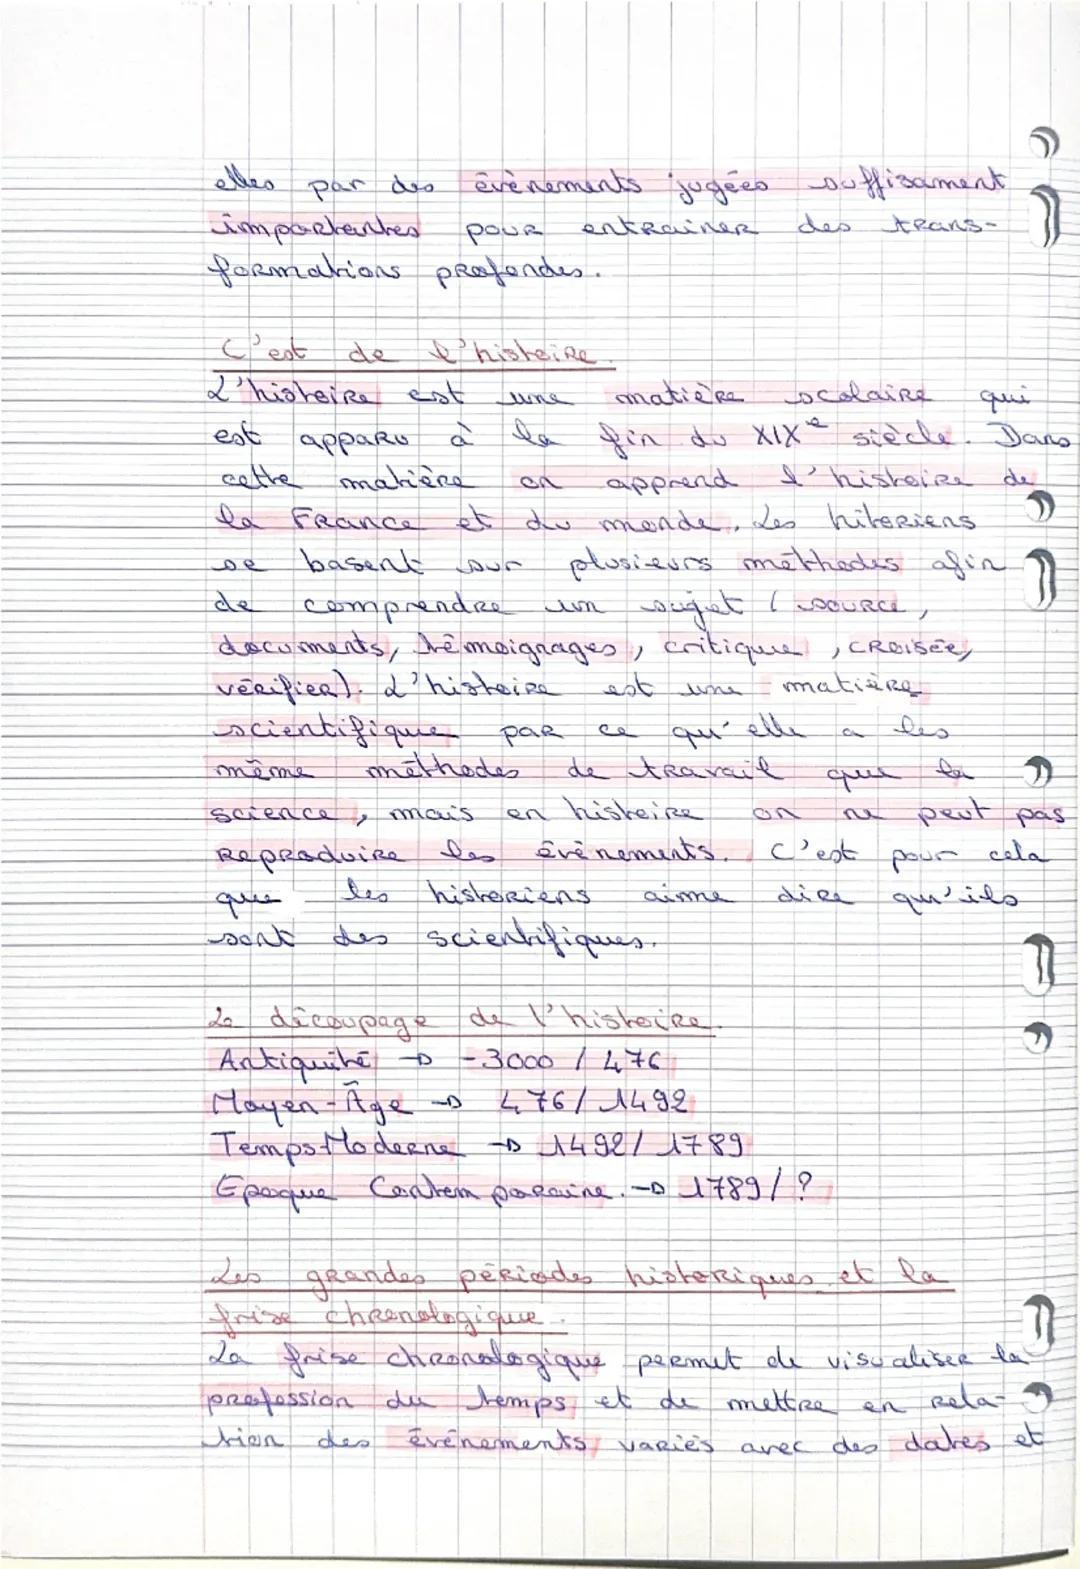 elles par des évènements jugées suffisament
importantes pour entrainer des trans-
formations profondes.
C'est de l'histoire.
L'histoire est une matière scolaire qui
est apparu à la fin du XIXe siècle. Dans
cette matière on apprend l'histoire de
la France et du monde. Les hitoriens
se basent sur plusieurs méthodes afin
de comprendre un sujet (source,
documents, témoignages, critique, croisée,
vérifier). L'histoire est une matière
scientifique par ce qu'elle a les
même méthodes de travail que la
science, mais en histoire on ne peut pas
reproduire les évènements. C'est pour cela
que les historiens aime dire qu'ils
sont des scientifiques.
Le découpage de l'histoire.
Antiquité → -3000 / 476
Moyen-Âge → 476/ 1492
Temps Moderne → 1492/ 1789
Epoque Contemporaine. → 1789/ ?
Les grandes périodes historiques et la
frise chronologique.
La frise chronologique permet de visualiser la
profession du temps et de mettre en rela-
tion des événements variés avec des dates et